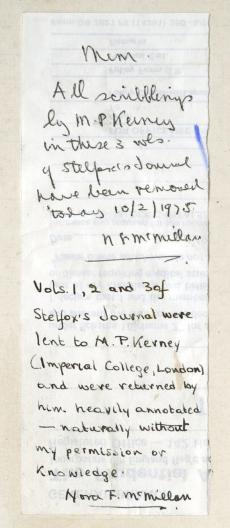 Mem.
All scribblings
by M.P. Kerney
in these 3 vols.
of Stelfox's Journal
have been removed
today 10/2/1975
N F McMillan
Vols. 1, 2 and 3 of
Stelfox's Journal were
lent to M.P. Kerney
(Imperial College, London)
and were returned by
him heavily annotated
— naturally without
my permission or
knowledge.
Nora F. McMillan